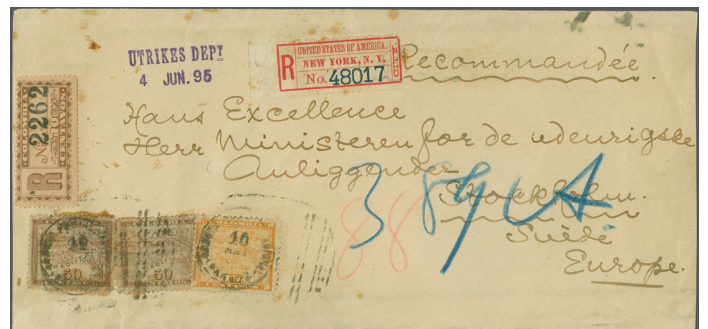 UTRIKES DEPT
4 JUN. 95
UNITED STATES OF AMERICA.
NEW YORK, N. Y.
R No. 48017
Recommandée
2262
R
Hans Excellence
Herr Ministeren for de udenrigske
Anliggender
Stockholm.
Suède
Europe.
3 89
88
COLOMBIA
16
50
50
16